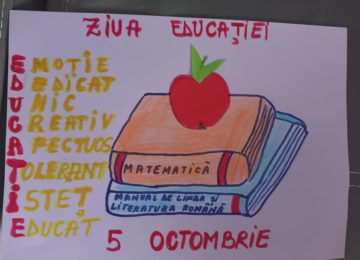 ZIUA EDUCAȚIEI
EMOȚIE
DEDICAT
UNIC
CREATIV
AFECTUOS
TOLERANT
ISTEȚ
EDUCAT
MATEMATICĂ
MANUAL DE LIMBA ȘI
LITERATURA ROMÂNĂ
5 OCTOMBRIE